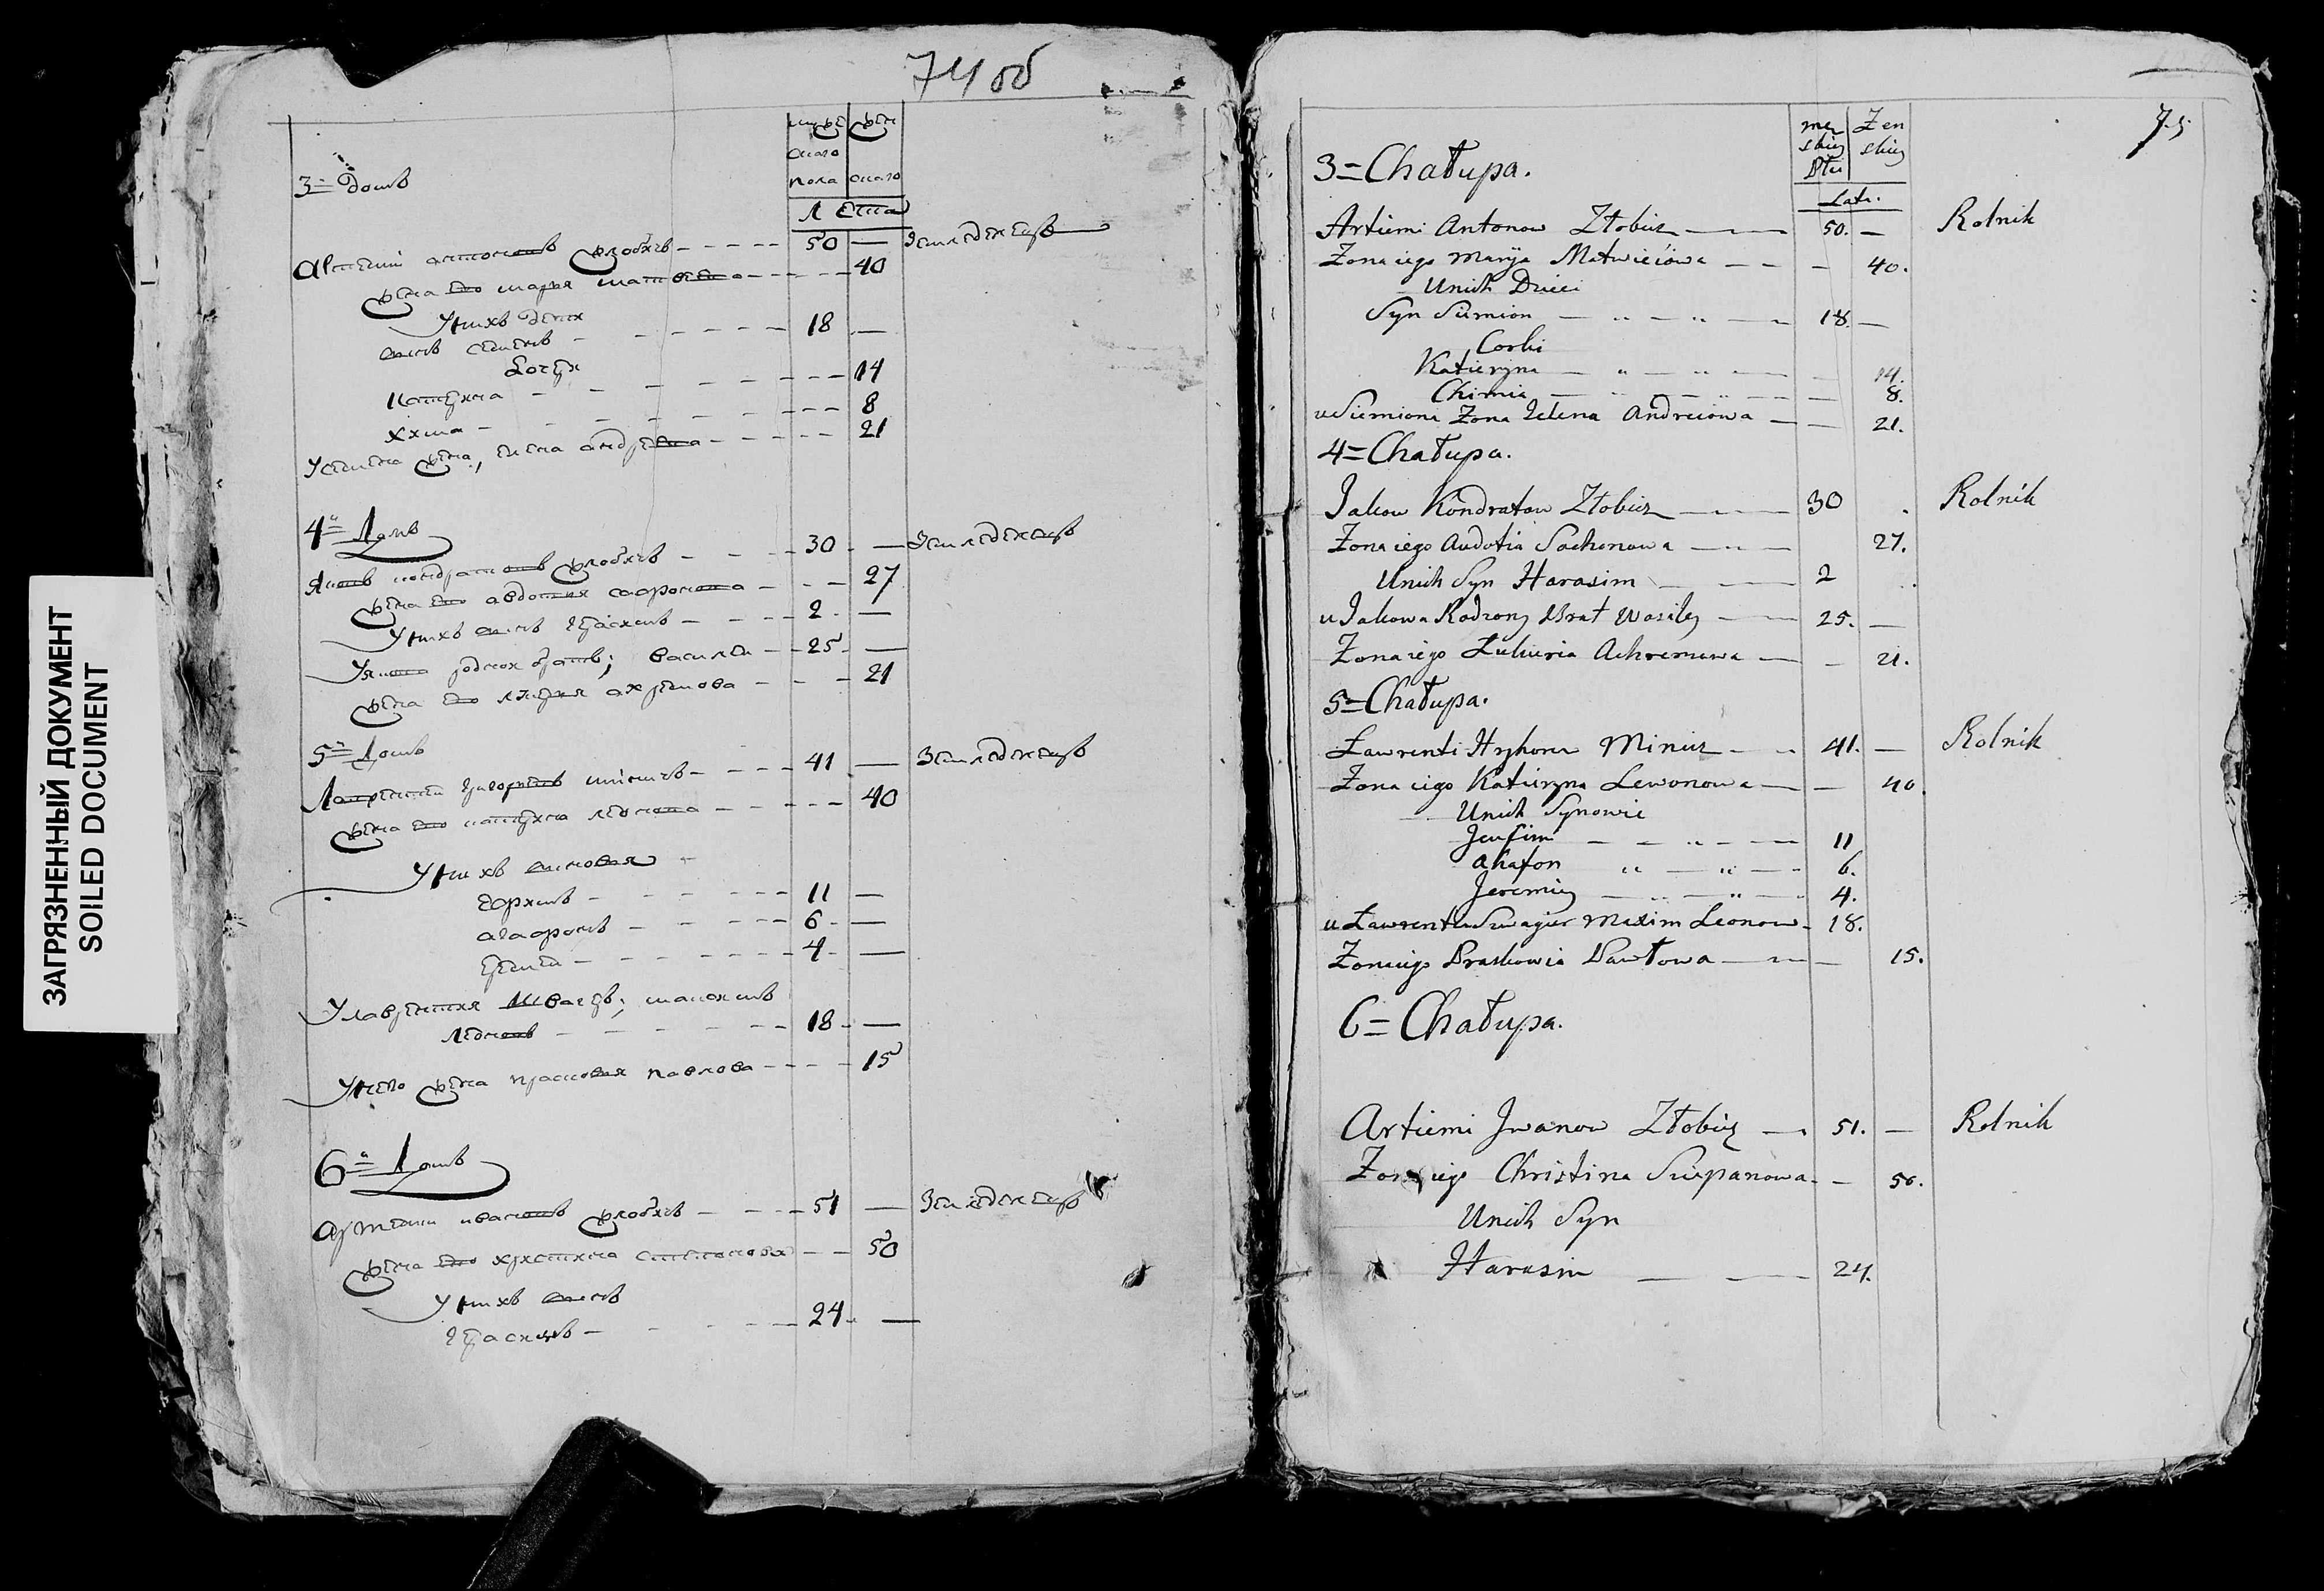 74 об
ЗАГРЯЗНЕННЫЙ ДОКУМЕНТ
SOILED DOCUMENT
муже
ского
пола
жен
ского
Лета
3 = домъ
Артемій антоновъ жлобичъ 50 — Земледелецъ
жена его марья матвеева — 40
У нихъ дети
сынъ семенъ 18 —
Дочери
катерина — 14
хима — 8
У семена жена, елена андреева — 21
4 = Домъ
Яковъ кондратовъ жлобичъ 30 — Земледелецъ
жена его авдотия сафронова — 27
У нихъ сынъ герасимъ 2 —
У якова родной братъ; василей 25 —
жена его лукерья ахремова — 21
5 = Домъ
Лаврентей григорьевъ миничъ 41 — Земледелецъ
жена его катерина левонова — 40
У нихъ сыновья
ефимъ 11 —
агафонъ 6 —
еремей 4 —
У лаврентия швагеръ; максимъ
левоновъ 18 —
У него жена прасковья павлова — 15
6 = Домъ
Артемий ивановъ жлобичъ 51 — Земледелецъ
жена его христина степанова — 50
У нихъ сынъ
герасимъ 24 —
75
mez
skiey
Płci
Zen
skiey
Lata.
3 = Chałupa.
Artiemi Antonow Złobicz — 50. — Rolnik
Zona iego Maryia Matwieiowa — — 40.
U nich Dzieci
Syn Siemion — 18. —
Corki
Katieryna — — 14.
Chimia — — 8.
u Siemiona Zona Jelena Andreiowa — — 21.
4 = Chałupa.
Jakow Kondratow Złobicz — 30 Rolnik
Zona iego Audotia Sachonowa — 27.
U nich Syn Harasim — 2
u Jakowa Rodzony Brat Wasiley — 25. —
Zona iego Łukieria Achremowa — — 21.
5 = Chałupa.
Ławrenti Hryhorew Minicz — 41. — Rolnik
Zona iego Katieryna Lewonowa — — 40.
U nich Synowie
Jeufim — 11
Ahafon — 6.
Jeremiey — 4.
u Ławrentia Szwagier Maxim Leonow — 18.
Zona iego Praskowia Pawłowa — — 15.
6 = Chałupa.
Artiemi Jwanow Złobicz — 51. — Rolnik
Zona iego Christina Sciepanowa — — 50.
U nich Syn
Harasim — 24.